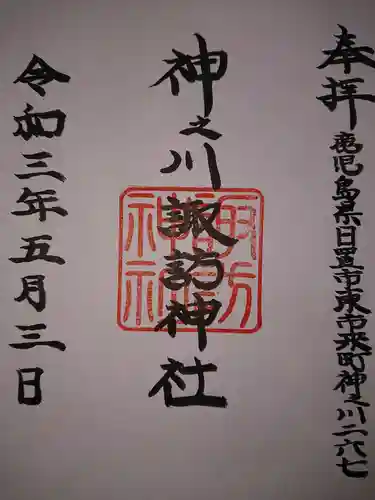 奉拝 鹿児島県日置市東市来町神之川二六七
神之川諏訪神社
諏訪神社
令和三年五月三日